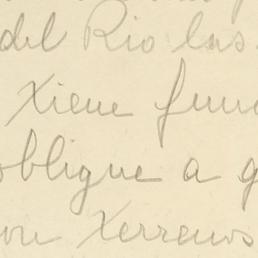 del Rio las
Xiene fun
oblique a q
on Xerrenos